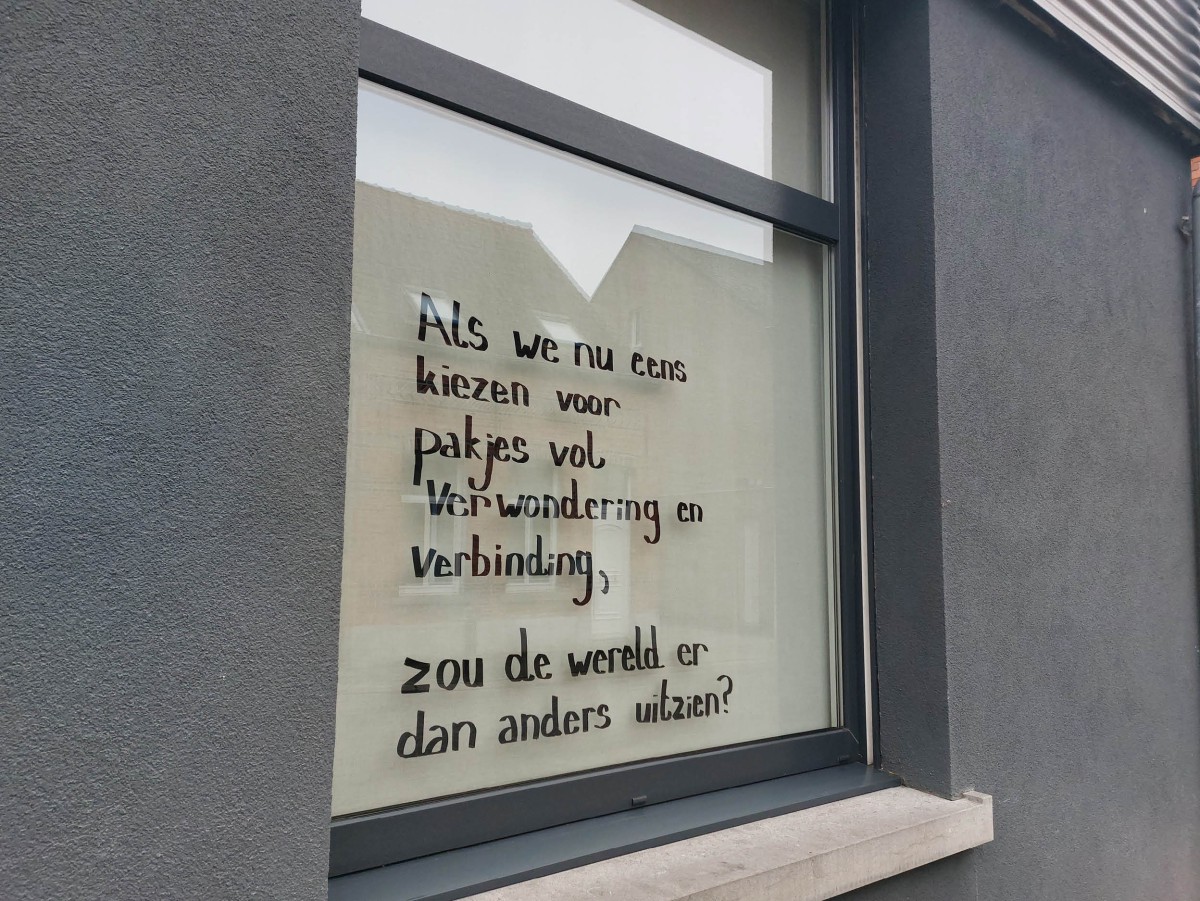 Als we nu eens
kiezen voor
pakjes vol
Verwondering en
Verbinding,
zou de wereld er
dan anders uitzien?